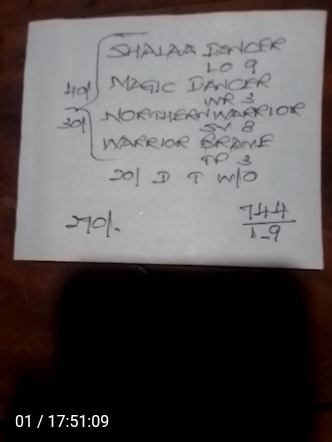 SHALAA DANCER
LO 9
40/ MAGIC DANCER
WR 3
30/ NORTHERN WARRIOR
SY 8
WARRIOR BRAVE
TP 3
20/ D T W/O
270/-
744
1-9
01 / 17:51:09